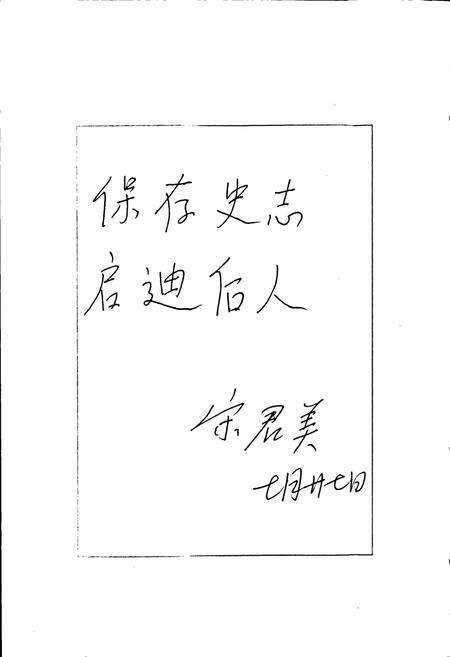 保存史志
启迪后人
宋君美
七月廿七日